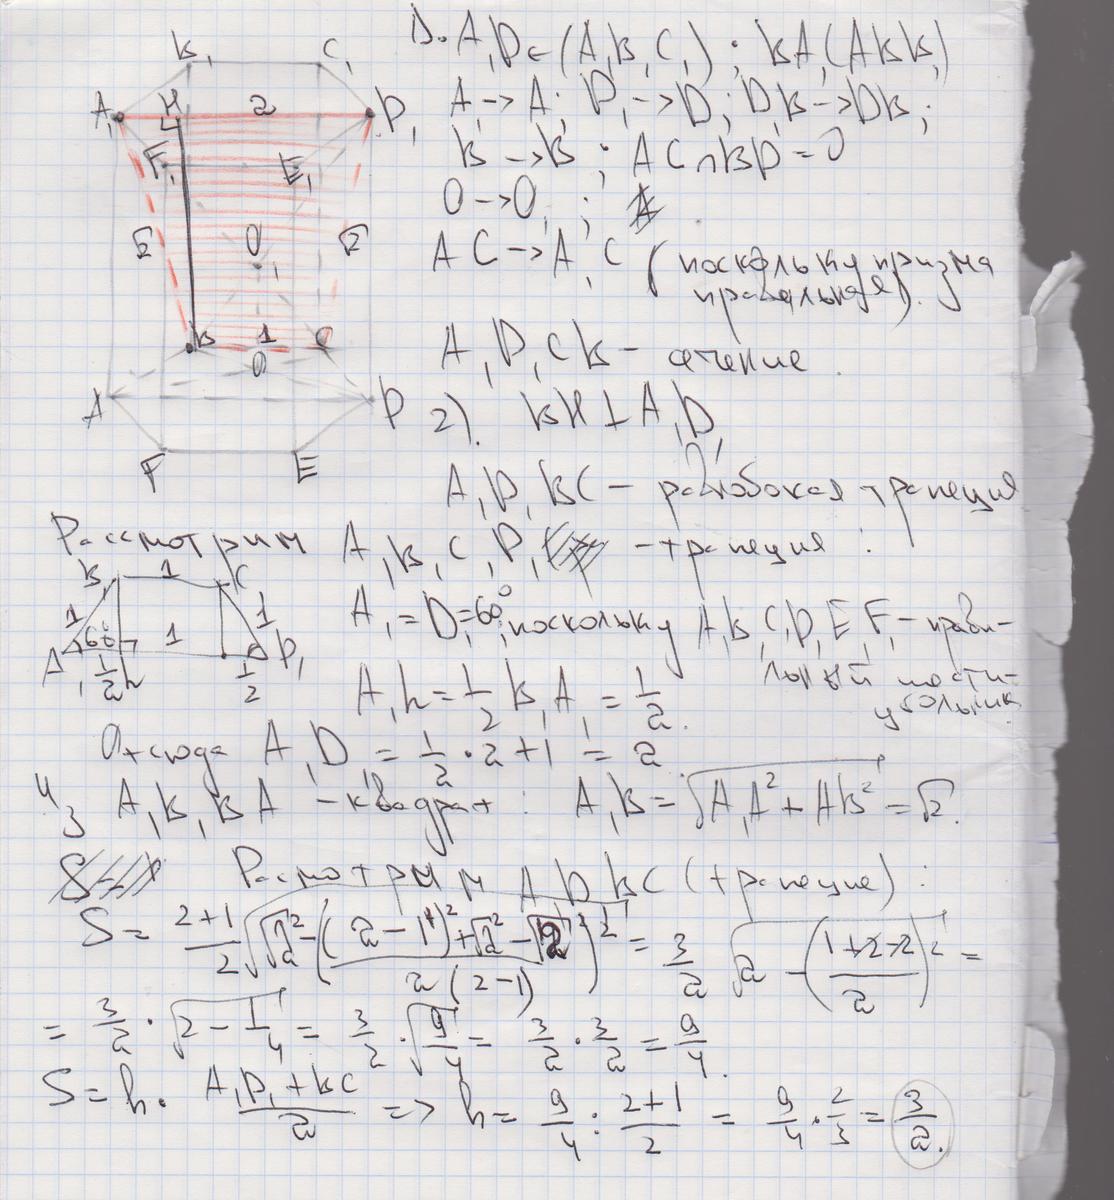 B₁ C₁
A₁ H 2 D₁
F₁ E₁
√2 O₁ √2
B 1 C
O
A D
F E
1). A₁D₁ ∈ (A₁B₁C₁) ; BA₁(ABB₁)
A₁→A; D₁→D; D₁B→DB;
B→B ; AC∩BD=O
O→O₁ ;
AC→A₁C (поскольку призма
правельная).
A₁D₁CB – сечение.
2). BH⊥A₁D₁
A₁D₁BC – равнобокая трапеция
Рассмотрим A₁B₁C₁D₁ – трапеция :
B₁ 1 C
1 60° 1 1
A₁ 1/2 h 1/2 D₁
A₁=D₁=60°, поскольку A₁B₁C₁D₁E₁F₁ – прави-
льный шести-
угольник
A₁h = 1/2 B₁A₁ = 1/2.
Отсюда A₁D₁ = 1/2 · 2 + 1 = 2
A₁B₁BA – квадрат : A₁B = √(A₁A² + AB²) = √2.
Расмотрим A₁D₁BC (трапецие) :
S = (2+1)/2 √(√2² – ((2–1)² + √2² – √2²)/(2(2–1)))²) = 3/2 √(2 – ((1+2–2)/2)²) =
= 3/2 · √(2 – 1/4) = 3/2 · √(9/4) = 3/2 · 3/2 = 9/4.
S = h · (A₁D₁+BC)/2 => h = 9/4 : (2+1)/2 = 9/4 · 2/3 = 3/2.